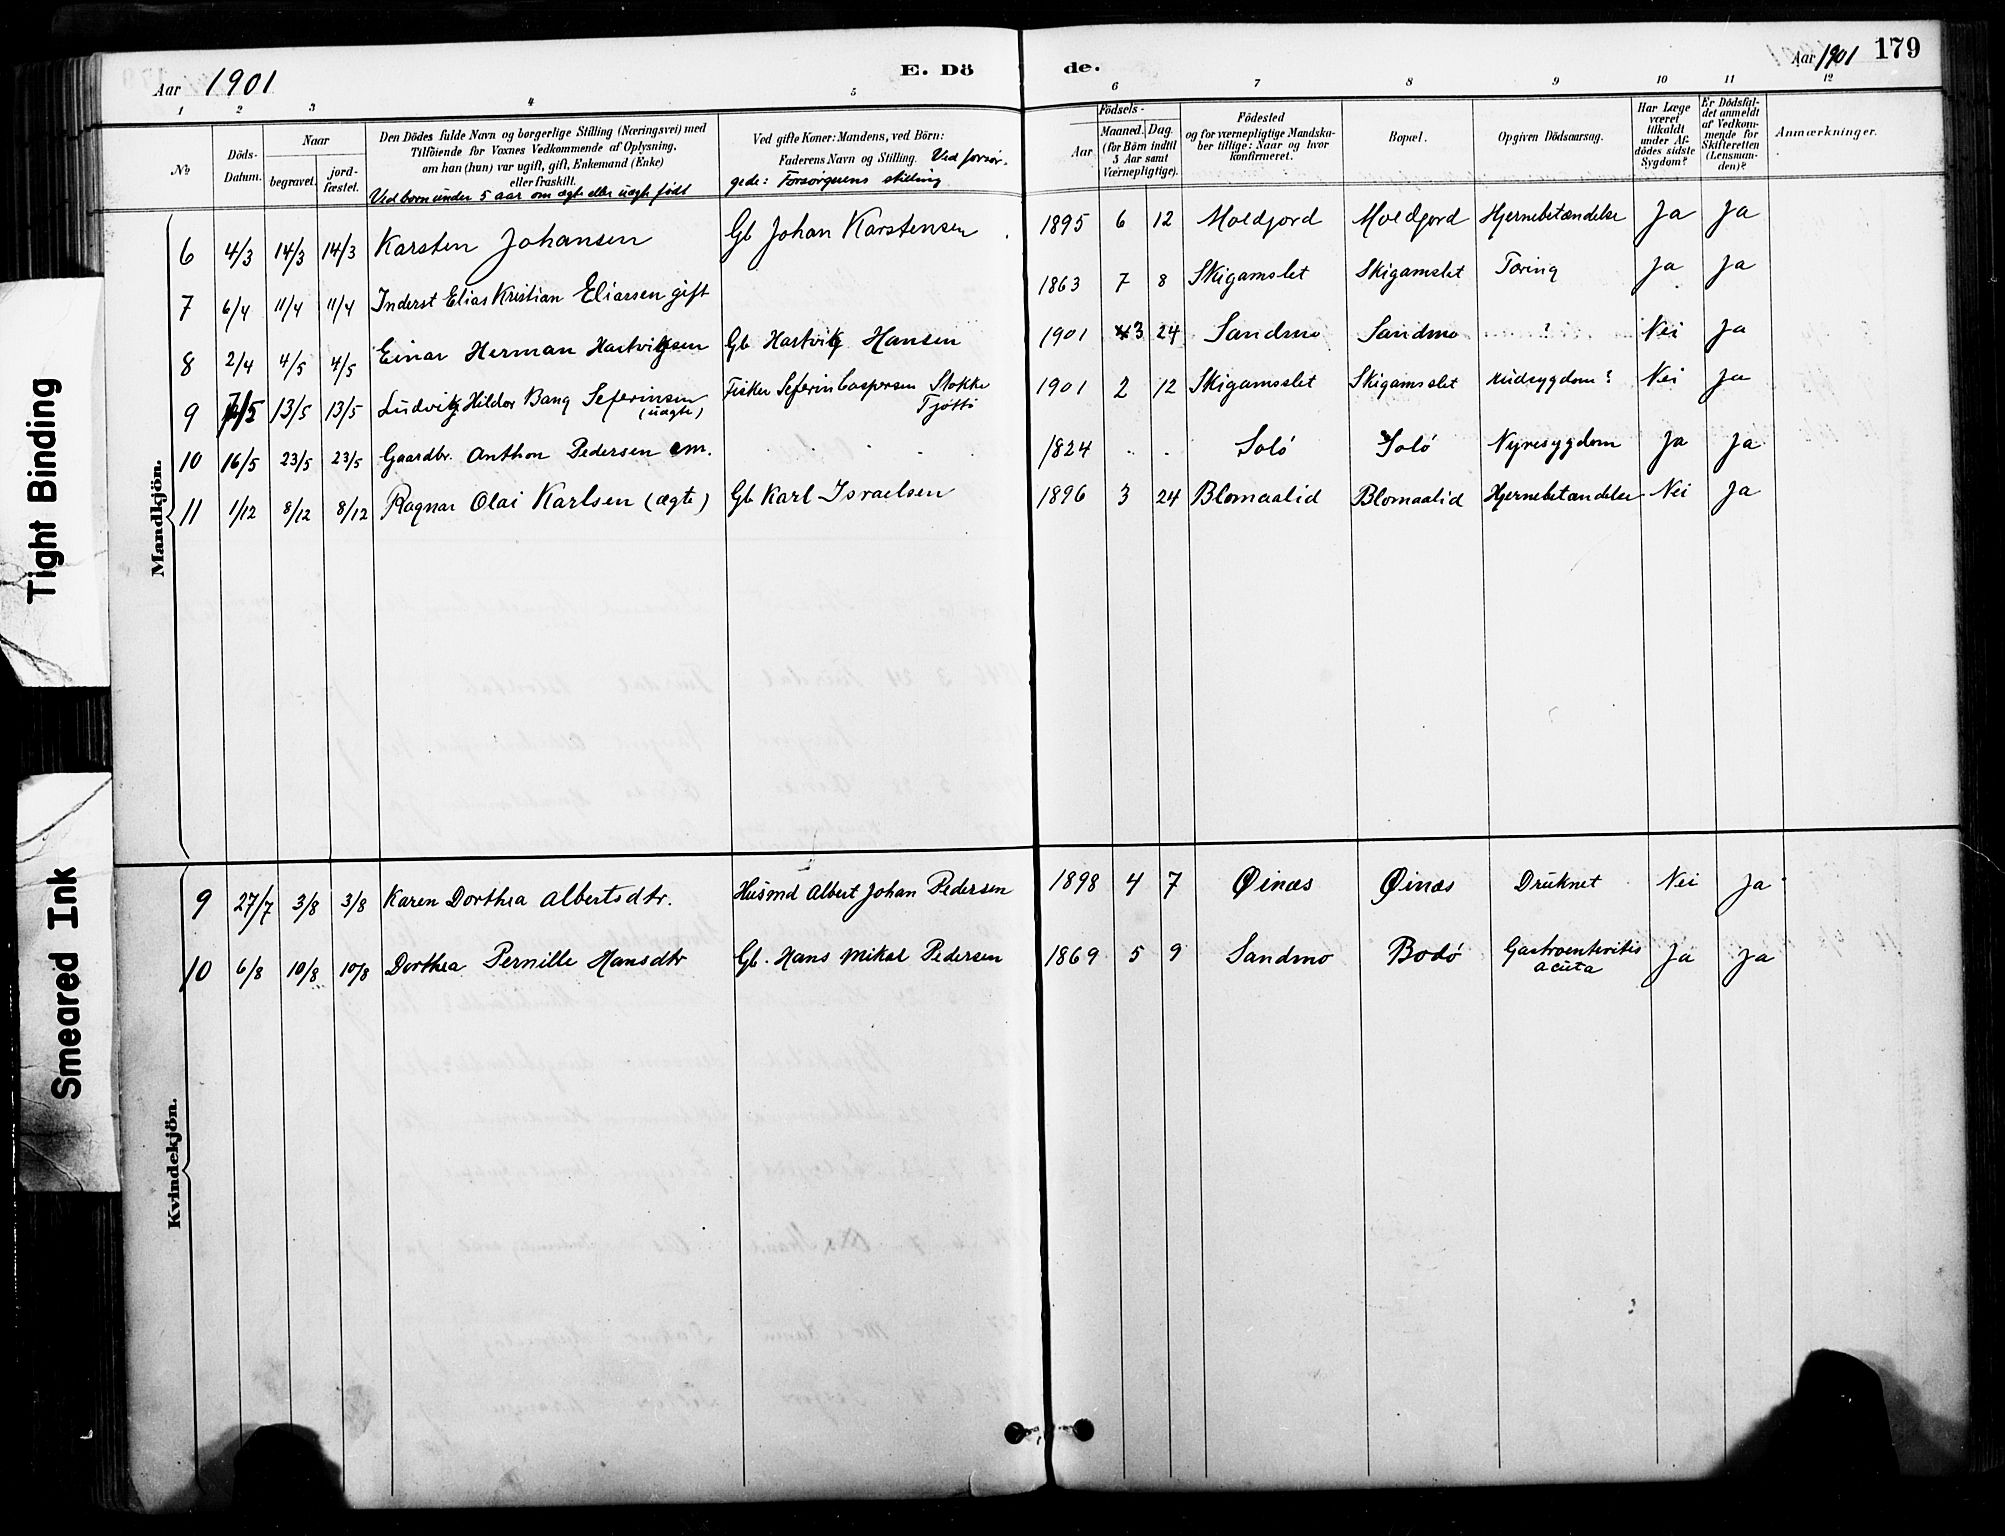 Aar 1901
E. Dö
de.
Aar 1901 179
1 2 3 4 5 6 7 8 9 10 11 12
No
Döds-
Datum.
Naar
begravet.
jord-
fæstet.
Den Dödes fulde Navn og borgerlige Stilling (Næringsvei) med
Tilföiende for Voxnes Vedkommende af Oplysning,
om han (hun) var ugift, gift, Enkemand (Enke)
eller fraskilt.
Ved born under 5 aar om ægte eller uægte født
Ved gifte Koner: Mandens, ved Börn:
Faderens Navn og Stilling. Ved forsør-
gede: Forsørgerens stilling
Födsels-
Aar
Maaned. Dag.
(for Börn indtil
5 Aar samt
Værnepligtige).
Födested
og for værnepligtige Mandska-
ber tillige: Naar og hvor
konfirmeret.
Bopæl.
Opgiven Dödsaarsag.
Har Læge
været
tilkaldt
under Af-
dödes sidste
Sygdom?
Er Dödsfal-
det anmeldt
af Vedkom-
mende for
Skifteretten
(Lensman-
den)?
Anmærkninger.
Mandkjön.
6 4/3 14/3 14/3 Karsten Johansen Gb Johan Karstensen 1895 6 12 Moldjord Moldjord Hjernebetændelse Ja Ja
7 6/4 11/4 11/4 Inderst Elias Kristian Eliassen gift 1863 7 8 Skigamslet Skigamslet Tæring Ja Ja
8 2/4 4/5 4/5 Einar Herman Hartvigsen Gb Hartvig Hansen 1901 3 24 Sandmo Sandmo ? Nei Ja
9 7/5 13/5 13/5 Ludvig Hildor Bang Seferinsen Fisker Seferin Caspersen Stokke 1901 2 12 Skigamsslet Skigamsslet Hudsygdom? Nei Ja
(uægte) Tjøttø
10 16/5 23/5 23/5 Gaardbr. Anthon Pedersen em. 1824 Solø Solø Nyresygdom Ja Ja
11 1/12 8/12 8/12 Ragnar Olai Karlsen (ægte) Gb Karl Israelsen 1896 3 24 Blomaalid Blomaalid Hjernebetændelse Nei Ja
Kvindekjön.
9 27/7 3/8 3/8 Karen Dorthea Albertsdtr. Husmd Albert Johan Pedersen 1898 4 7 Øinæs Øinæs Druknet Nei Ja
10 6/8 10/8 10/8 Dorthea Pernille Hansdtr Gb. Hans Mikal Pedersen 1869 5 9 Sandmo Bodø Gastroenteritis Ja Ja
acuta
Tight Binding
Smeared Ink